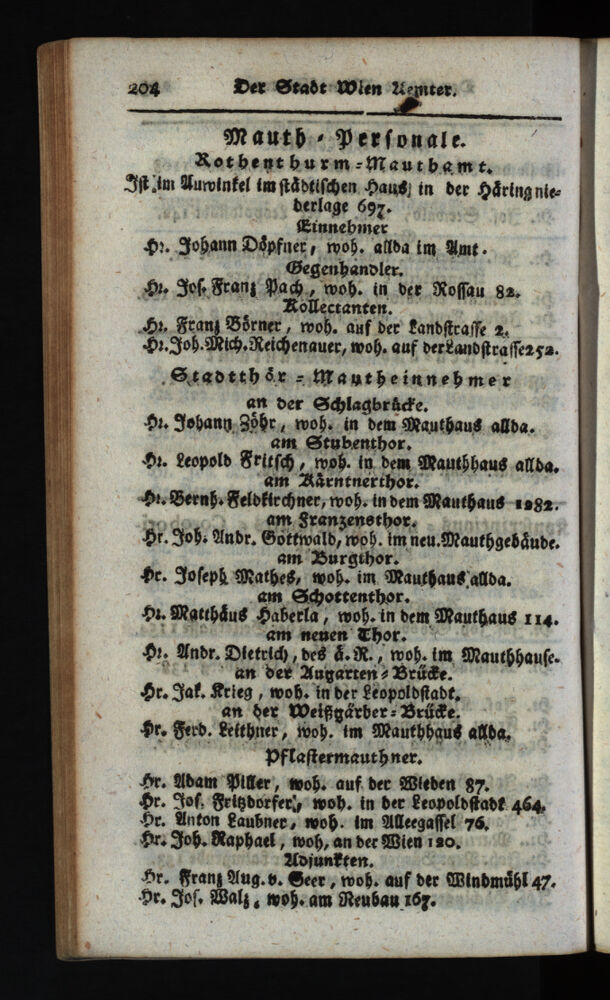 204 Der Stadt Wien Aemter.
Mauth-Personale.
Rothenthurm-Mauthamt.
Ist im Auwinkel im städtischen Haus, in der Häringnie-
derlage 697.
Einnehmer
Hr. Johann Döpfner, woh. allda im Amt.
Gegenhandler.
Hr. Jos. Franz Pach, woh. in der Rossau 82.
Kollectanten.
Hr. Franz Börner, woh. auf der Landstrasse 2.
Hr. Joh. Mich. Reichenauer, woh. auf der Landstrasse 252.
Stadtthör-Mautheinnehmer
an der Schlagbrücke.
Hr. Johann Zöhr, woh. in dem Mauthaus allda.
am Stubenthor.
Hr. Leopold Fritsch, woh. in dem Mauthhaus allda.
am Kärntnerthor.
Hr. Bernh. Feldkirchner, woh. in dem Mauthaus 1082.
am Franzensthor.
Hr. Joh. Andr. Gottwald, woh. im neu. Mauthgebäude.
am Burgthor.
Hr. Joseph Mathes, woh. im Mauthaus allda.
am Schottenthor.
Hr. Matthäus Haberla, woh. in dem Mauthaus 114.
am neuen Thor.
Hr. Andr. Dietrich, des ä. R., woh. im Mauthhause.
an der Augarten-Brücke.
Hr. Jak. Krieg, woh. in der Leopoldstadt.
an der Weißgärber-Brücke.
Hr. Ferd. Leithner, woh. im Mauthhaus allda.
Pflastermauthner.
Hr. Adam Piller, woh. auf der Wieden 87.
Hr. Jos. Fritzdorfer, woh. in der Leopoldstadt 464.
Hr. Anton Laubner, woh. im Alleegassel 76.
Hr. Joh. Raphael, woh, an der Wien 120.
Adjunkten.
Hr. Franz Aug. v. Geer, woh. auf der Windmühl 47.
Hr. Jos. Walz, woh. am Neubau 167.